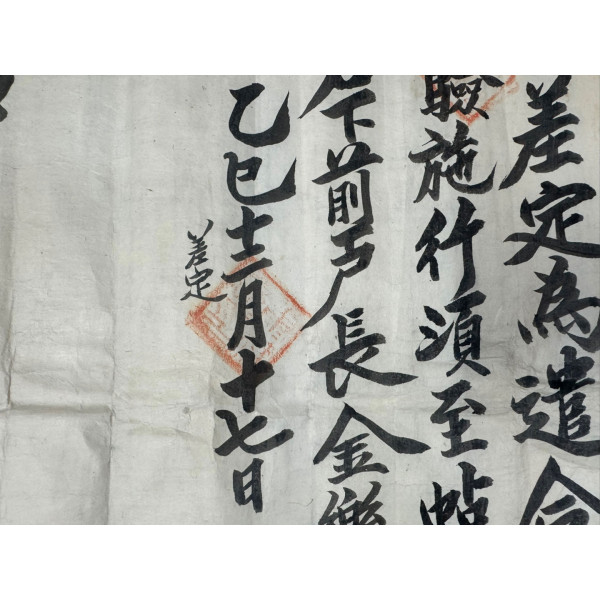 差定為遣合
驗施行須至帖
下前戶長金樂
乙巳十二月十七日
差定